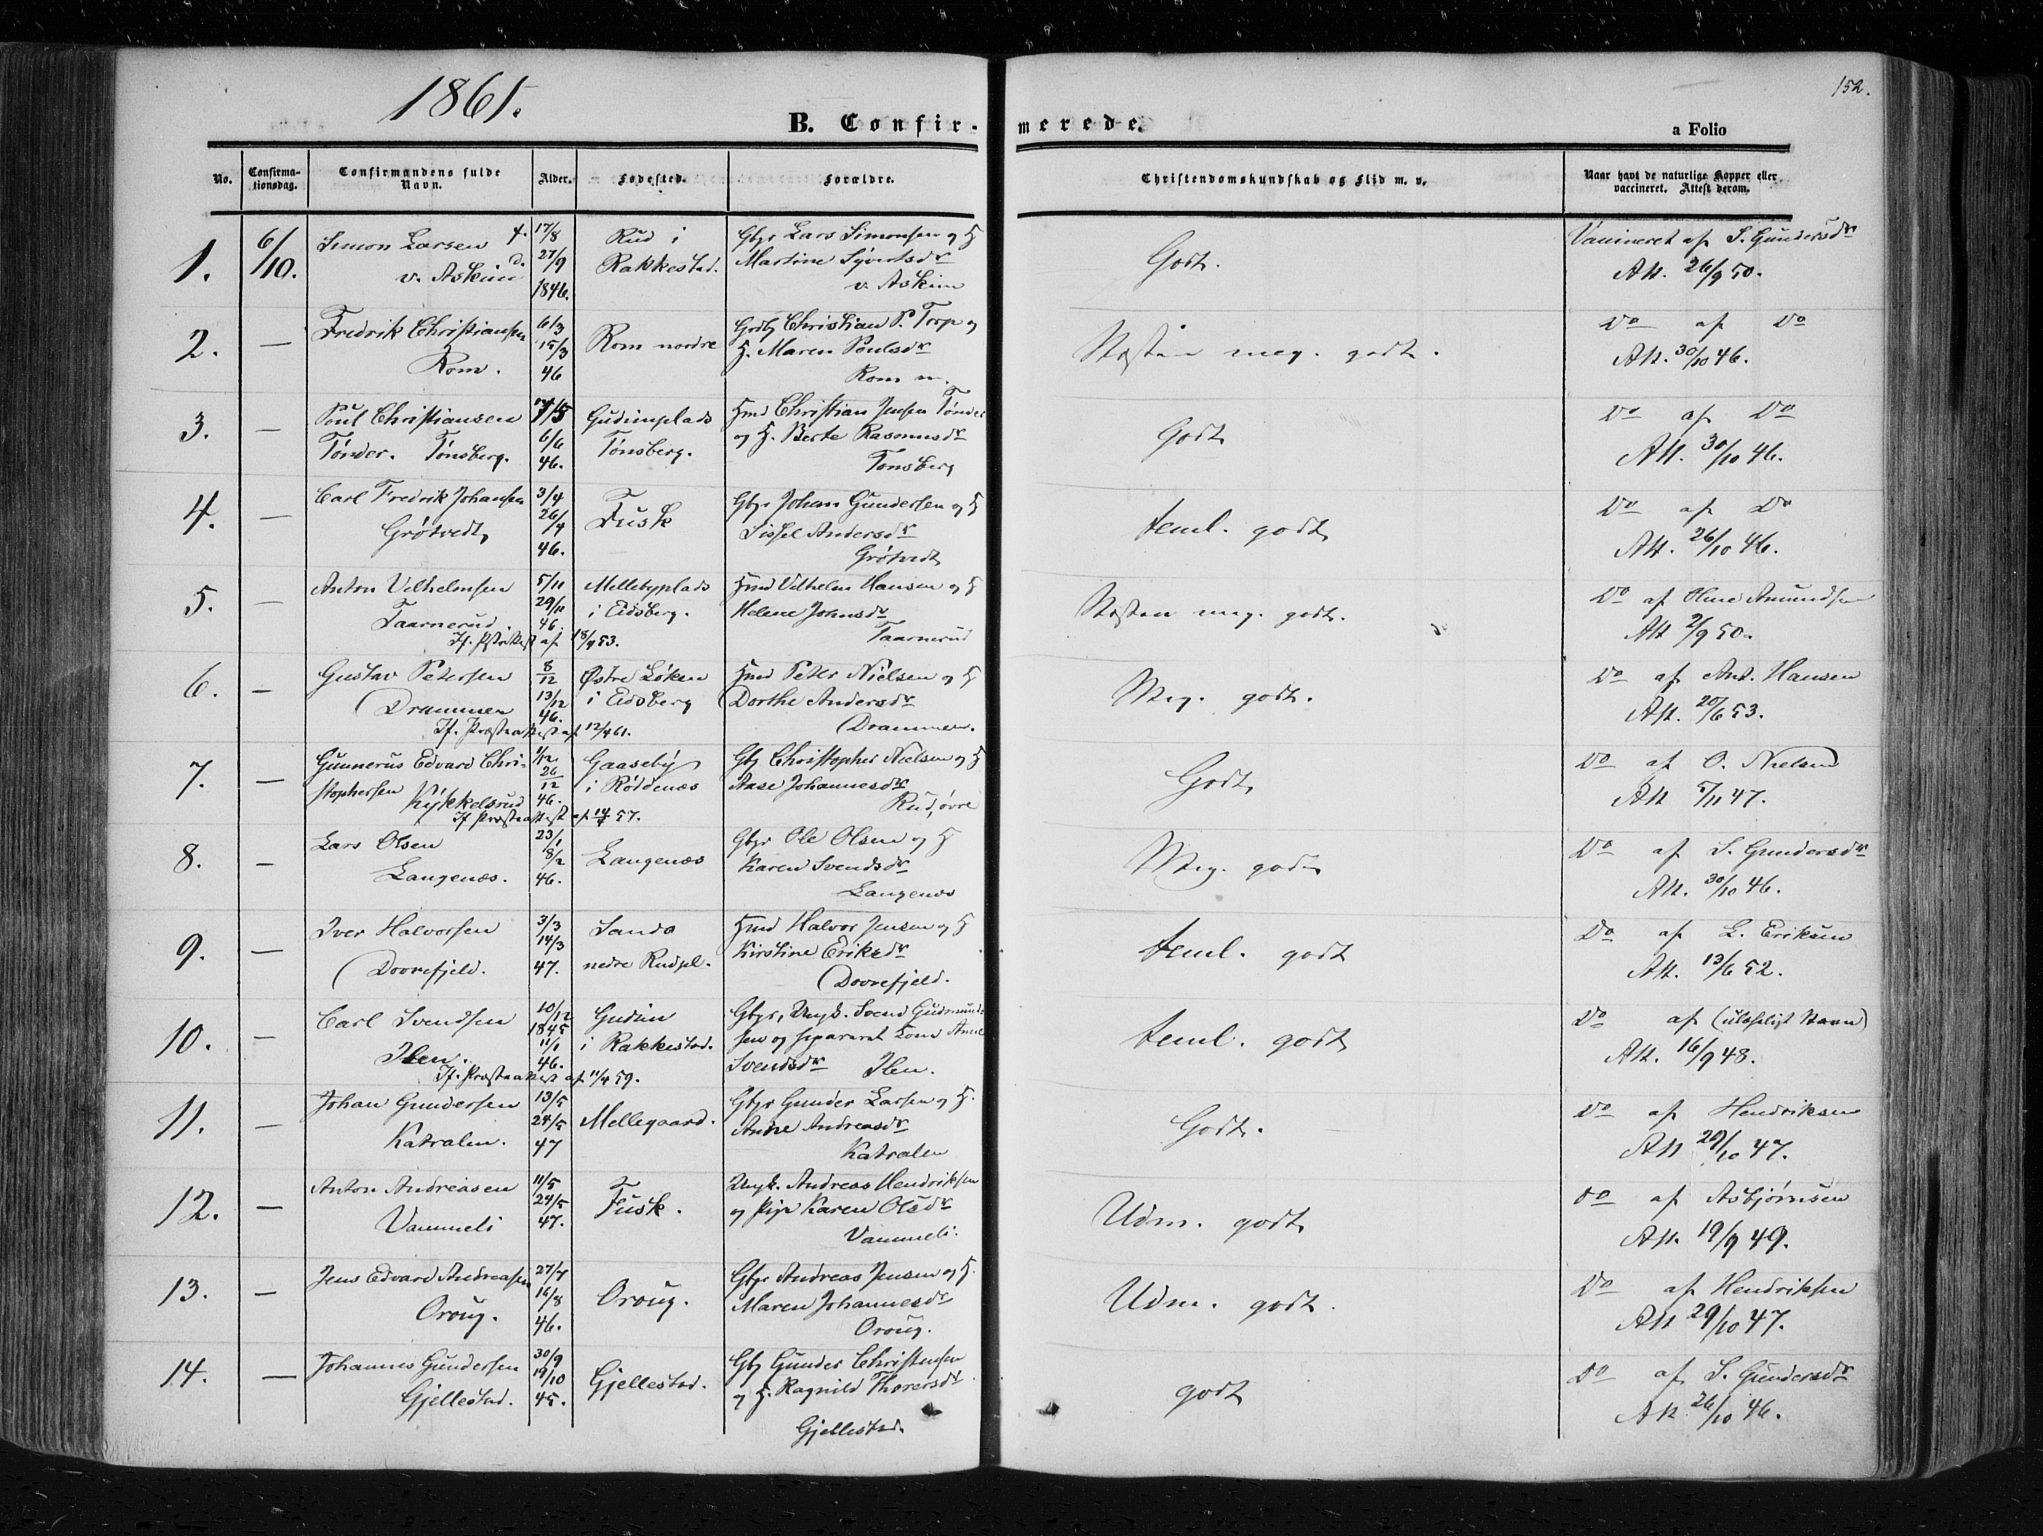 152.
1861.
B. Confir- merede.
a Folio
No. Confirma-tionsdag. Confirmandens fulde Navn. Alder. Fødested. Forældre. Christendomskundskab og Flid m. v. Naar havt de naturlige Kopper eller vaccineret. Attest derom.
1. 6/10. Simon Larsen
v. Askim
17/8 27/9 1846.
Rud i
Rakkestad.
Gbr Lars Simonsen og H
Martine Syvertsdr
v. Askim
Godt.
Vaccineret af S. Gundersdr
Att. 26/9 50.
2. — Fredrik Christiansen
Rom.
6/3 15/3 46
Rom nordre
Christian P. Torp og
H. Maren Poulsdr
Rom n.
Næsten meg. godt.
Do af Do
Att. 30/10 46.
3. — Poul Christiansen
Tønder. Tønsberg.
6/6 46.
Gudimplads
Tønsberg.
Hmd Christian Jensen Tønder
og H. Berte Rasmusdr
Tønsberg
Godt
Do af Do
Att. 30/10 46.
4. — Carl Fredrik Johansen
Grøtvedt
3/4 26/4 46.
Fusk
Gbr Johan Gundersen og H
Sissel Andersdr
Grøtvedt
teml. godt
Do af Do
Att. 26/10 46.
5. — Anton Vilhelmsen
Taarnerud.
5/11 29/11 46.
If. Præstattest af 18/9 53.
Mellebyplads
i Eidsberg.
Hmd Vilhelm Hansen og H
Helene Johnsdr
Taarnerud
Næsten meg. godt.
Do af Amundsen
Att 2/9 50.
6. — Gustav Petersen
Drammen
8/12 13/12 46.
If. Præstaattest af 12/4 61.
Østre Løken
i Eidsberg
Hmd Peter Nielsen og H
Dorthe Andersdr
Drammen.
Meg. godt.
Do af And. Hansen
Att. 20/6 53.
7. — Gunnerus Edvard Chri-
stophersen Kykkelsrud
1/12 26/12 46.
If Præstaattest af 57.
Gaaseby
i Røddenæs
Gbr Christopher Nielsen og H
Aase Johannesdr
Rud, øvre
Godt
Do af O. Nieland
Att 5/11 47.
8. — Lars Olsen
Langenæs.
23/1 8/2 46.
Langenæs
Gbr Ole Olsen og H
Karen Svendsdr
Langenæs
Meg. godt
Do af S. Gundersdr
Att. 30/10 46.
9. — Iver Halvorsen
Dovrefjeld.
3/3 14/3 47.
Sando
nedre Rudpl.
Hmd Halvor Jensen og H
Kirstine Eriksdr
Dovrefjeld.
teml. godt
Do af L. Eriksen
Att. 13/6 52.
10. — Carl Svendsen
Ilen.
10/12 1845 11/1 46.
If. Præstaattest af 11/4 59.
Gudim
i Rakkestad.
Gbr, Ungk. Svend Gudmund-
sen og separeret Kone Anne
Svendsdr Ilen.
teml. godt
Do af (ulæseligt Navn)
Att. 16/9 48.
11. — Johan Gundersen
Katralen.
13/5 24/5 47
Mellegaard.
Gbr Gunder Larsen og H.
Anne Andreasdr
Katralen
Godt.
Do af Hendriksen
Att 29/10 47.
12. — Anton Andreasen
Vammeli
11/5 24/5 47.
Fusk.
Ungk. Andreas Hendriksen
og Pige Karen Olsdr
Vammeli.
Udm. godt
Do af Asbjørnsen
Att. 19/9 49.
13. — Jens Edvard Andreasen
Oroug.
27/7 16/8 46.
Oroug.
Gbr Andreas Jensen og H.
Maren Johannesdr
Oroug.
Udm. godt.
Do af Hendriksen
Att 29/10 47.
14. — Johannes Gundersen
Gjellestad.
30/9 19/10 45.
Gjellestad.
Gbr Gunder Christensen
og H. Ragnild Thorersdr
Gjellestad.
godt
Do af S. Gundersdr
Att. 26/10 46.